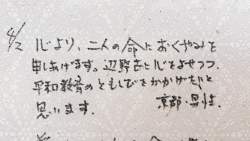 4/2 心より、二人の命におくやみを
申しあげます。辺野古に心をよせつつ、
平和教育のともしびをかかげたいと
思います。 京都・男性.